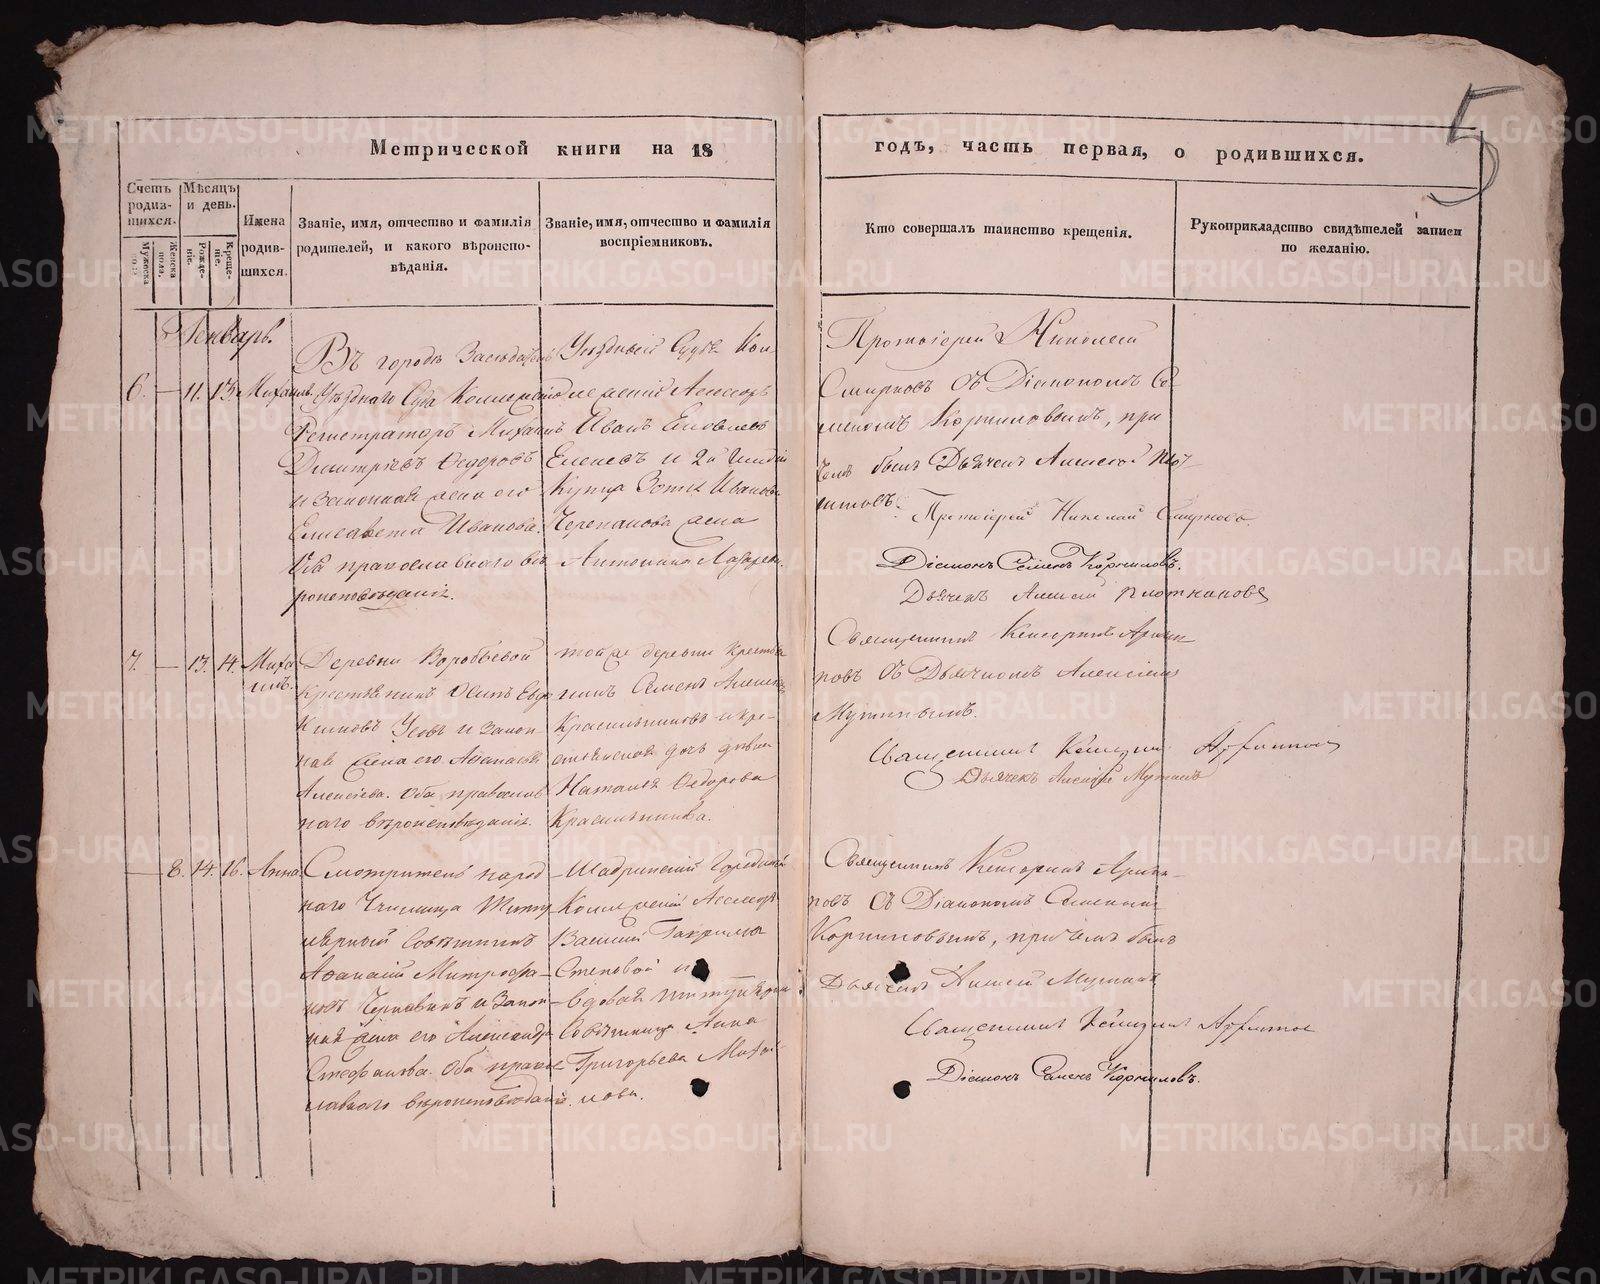 5
Метрической книги на 18
годъ, часть первая, о родившихся.
Счетъ родив-шихся.
Мужеска пола.
Женска пола.
Мѣсяцъ и день.
Рожде-ніе.
Креще-ніе.
Имена родив-шихся.
Званіе, имя, отчество и фамилія
родителей, и какого вѣроиспо-
вѣданія.
Званіе, имя, отчество и фамилія
воспріемниковъ.
Кто совершалъ таинство крещенія.
Рукоприкладство свидѣтелей записи
по желанію.
Генварь.
6. — 11. 13. Михаилъ.
Въ городѣ Засѣдатель
Уѣзднаго Суда Коллежскій
Регистраторъ Михаилъ
Дмитріевъ Ѳедоровъ
и законная жена его
Елисавета Иванова.
Оба православнаго вѣ-
роисповѣданія.
Уѣздный Судья Кол-
лежскій Ассесоръ
Иванъ Яковлевъ
и 2й Гильдіи
Купца Зотика Иванова
Черепанова жена
Антонина
Протоіерей Николай
Смирновъ съ Діакономъ Се-
меномъ Корниловымъ, при
чемъ былъ Дьячекъ Алексей
Протоіерей Николай Смирновъ.
Діаконъ Семенъ Корниловъ.
Дьячекъ Алексей Плотниковъ
7. — 13. 14. Миха-
илъ.
Деревни Воробьевой
Крестьянинъ Осипъ Евдо-
кимовъ Усовъ и закон-
ная жена его Афанасья
Алексіева. Оба православ-
наго вѣроисповѣданія.
той же деревни крестья-
нинъ Семенъ
Красильниковъ и кре-
стьянская дочь дѣвка
Наталья Ѳедорова
Красильникова.
Священникъ
съ Дьячкомъ Алексіемъ
Мутинымъ.
Священникъ
Дьячекъ Алексій Мутинъ
— 8. 14. 16. Анна.
Смотритель народ-
наго Училища Титу-
лярный Совѣтникъ
Афанасій Митрофа-
новъ и закон-
ная жена его Александра
Стефанова. Оба право-
славнаго вѣроисповѣданія.
Шадринскій Городничій
Коллежскій Ассесоръ
Василий Гаврилов
Стеновой и
вдовая титулярная
Совѣтница Анна
Григорьева
Священникъ
съ Діакономъ Семеномъ
Корниловымъ, причемъ былъ
Дьячекъ Алексей Мутинъ
Священникъ
Діаконъ Семенъ Корниловъ.
METRIKI.GASO-URAL.RU